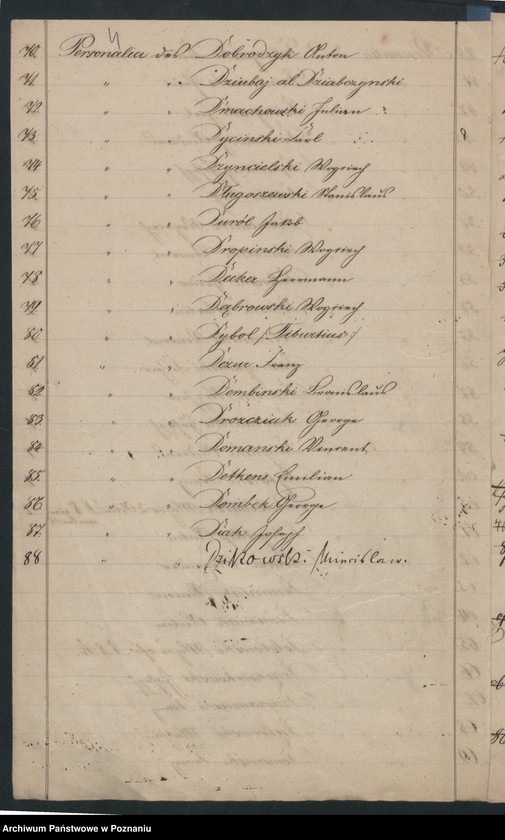 70. Personalia des Dobrodzyk Anton
71. " " Dziabaj al. Dziabczynski
72 " " Dmachowski Julian
73 " " Dycinski Karl 8
74 " " Dzyncielski Woyciech
75. " " Długoszewski Stanislaus
76 " " Duról Jakob
77 " " Dropinski Woyciech
78 " " Decker Herrmann
79 " " Dąbrowski Woyciech
80 " " Dybol /:Tiburtius:/
81 " " Dezur Franz
82 " " Dombinski Bronislaus
83 " " Drozcziak George
84. " " Domanski Vincent
85. " " Dethens Emilian
86 " " Dombek George
87. " " Diak Joseph
88 " " Dzikowski Miecislaw.
Archiwum Państwowe w Poznaniu